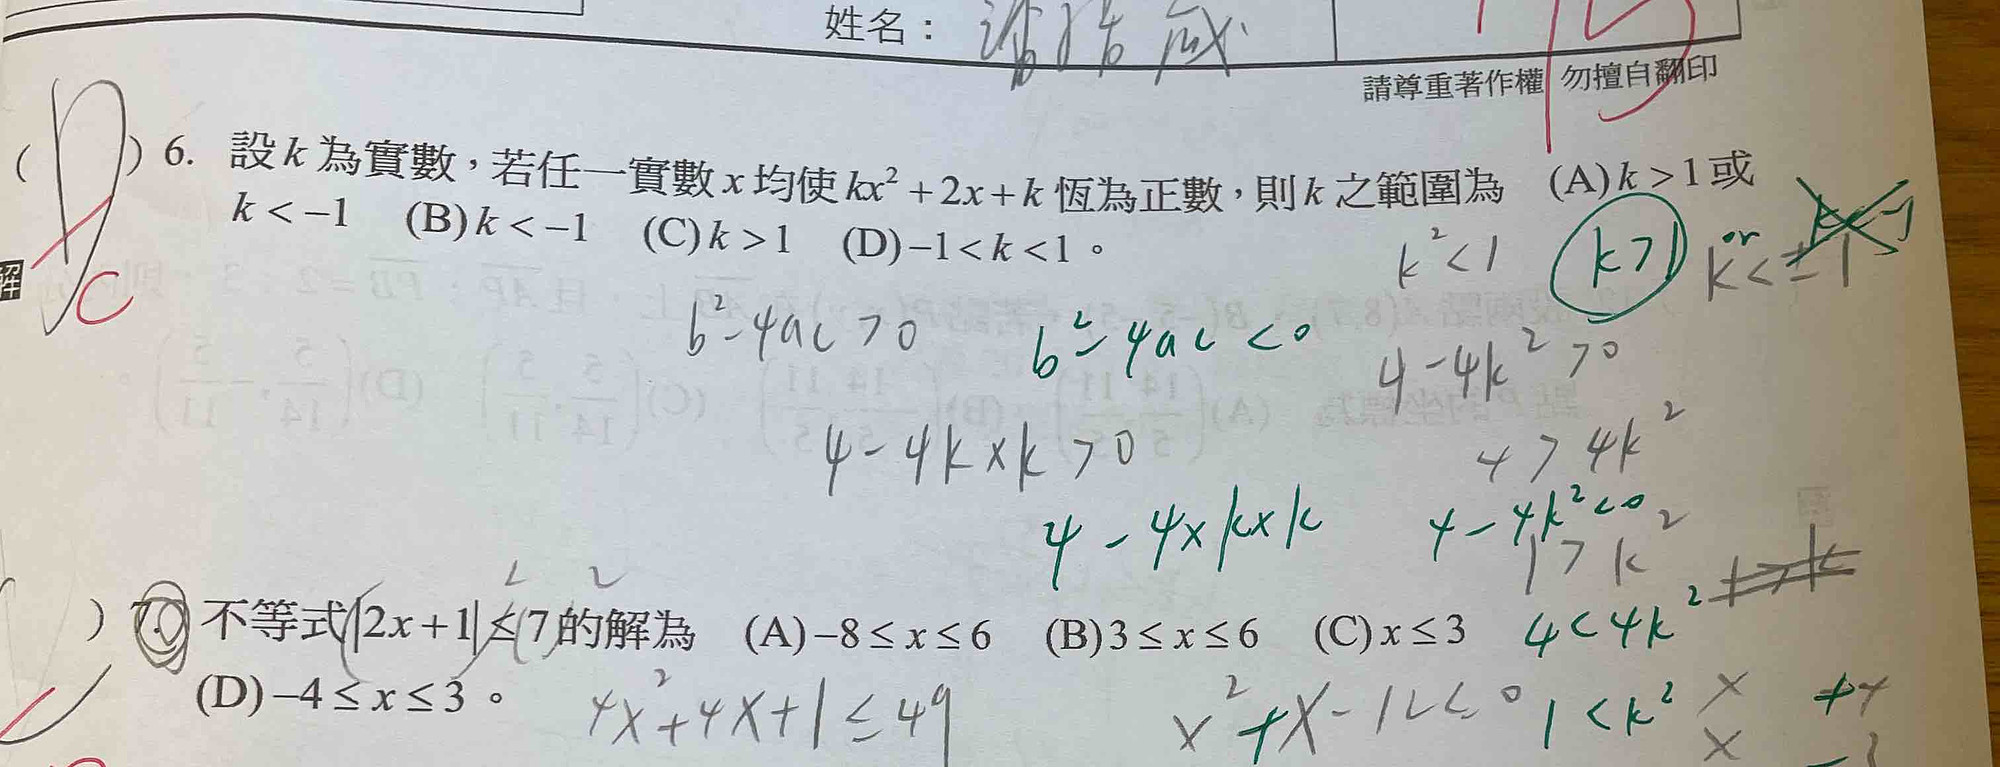 姓名：
請尊重著作權 勿擅自翻印
( D ) 6. 設k為實數，若任一實數x均使kx²+2x+k恆為正數，則k之範圍為 (A)k>1或
C
k<-1 (B)k<-1 (C)k>1 (D)-1<k<1。
k²<1 k>1 or k<-1
解
b²-4ac>0 b²-4ac<0 4-4k²>0
4-4k×k>0 4>4k²
4-4×k×k 4-4k²<0
1>k²
) 7. 不等式|2x+1|≤7的解為 (A)-8≤x≤6 (B)3≤x≤6 (C)x≤3 4<4k²
(D)-4≤x≤3。 4x²+4x+1≤49 x²+x-12≤0 1<k² x +4
x -3